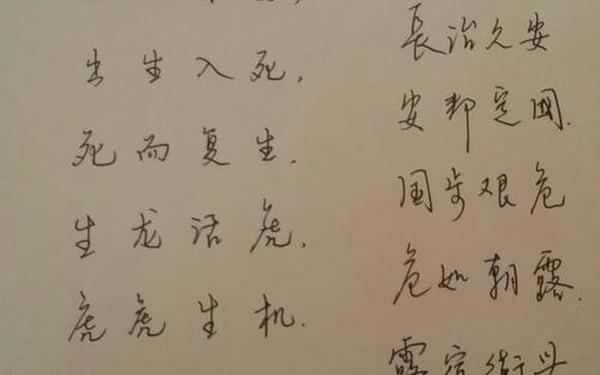 出生入死,
死而复生.
生龙活虎,
虎虎生机.
長治久安
安邦定國.
国步艰危
危如朝露.
露宿街头